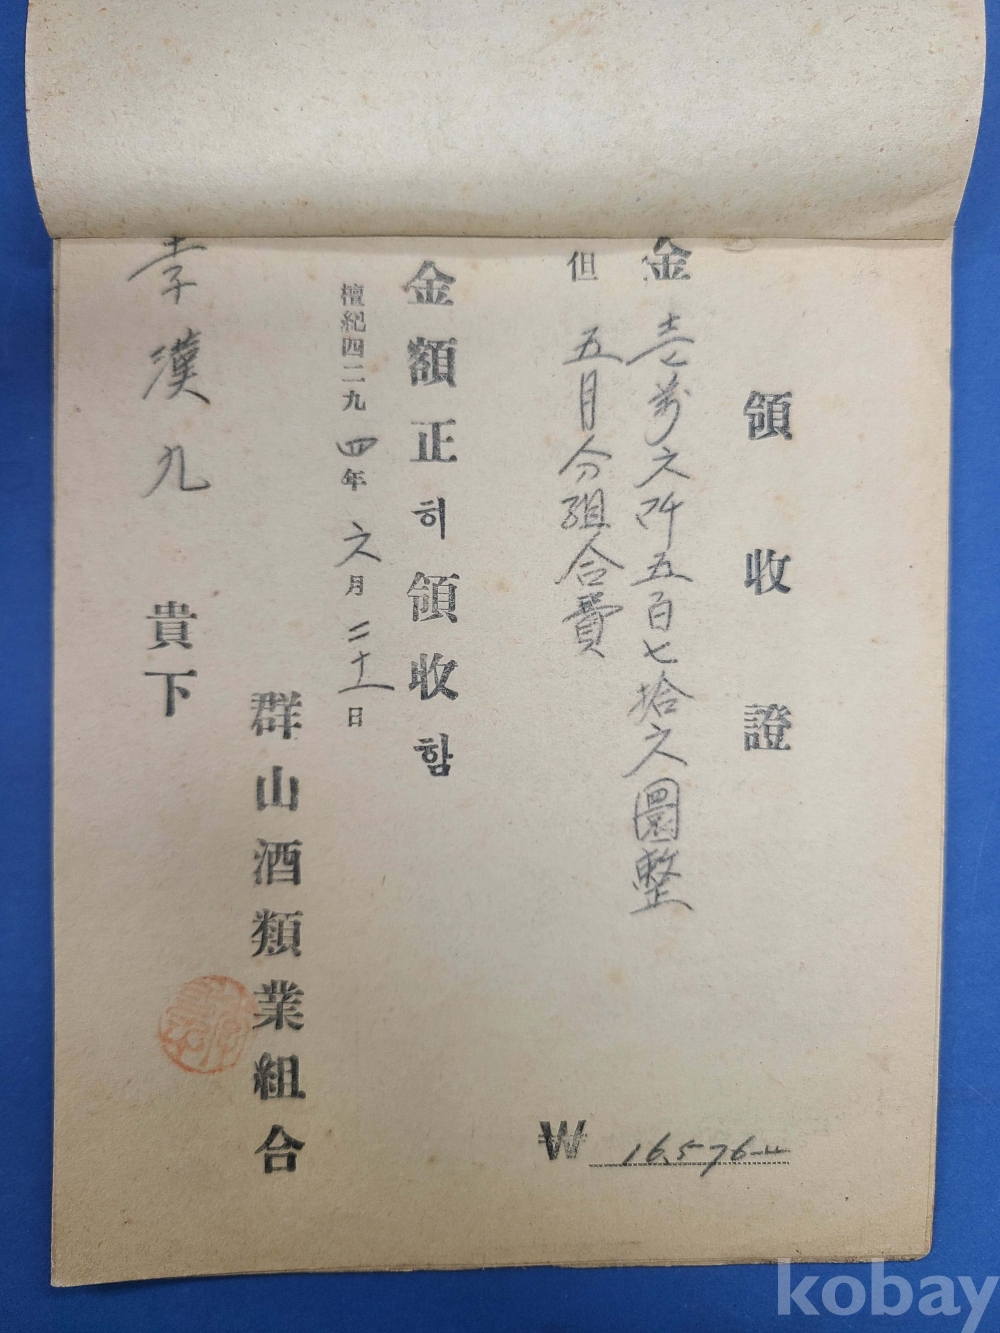 領收證
金 壱萬六阡五百七拾六圜整
但 五月分組合費
金額正히領收함
檀紀四二九四年六月二十一日
群山酒類業組合
李漢九 貴下
₩ 16,576-
kobay